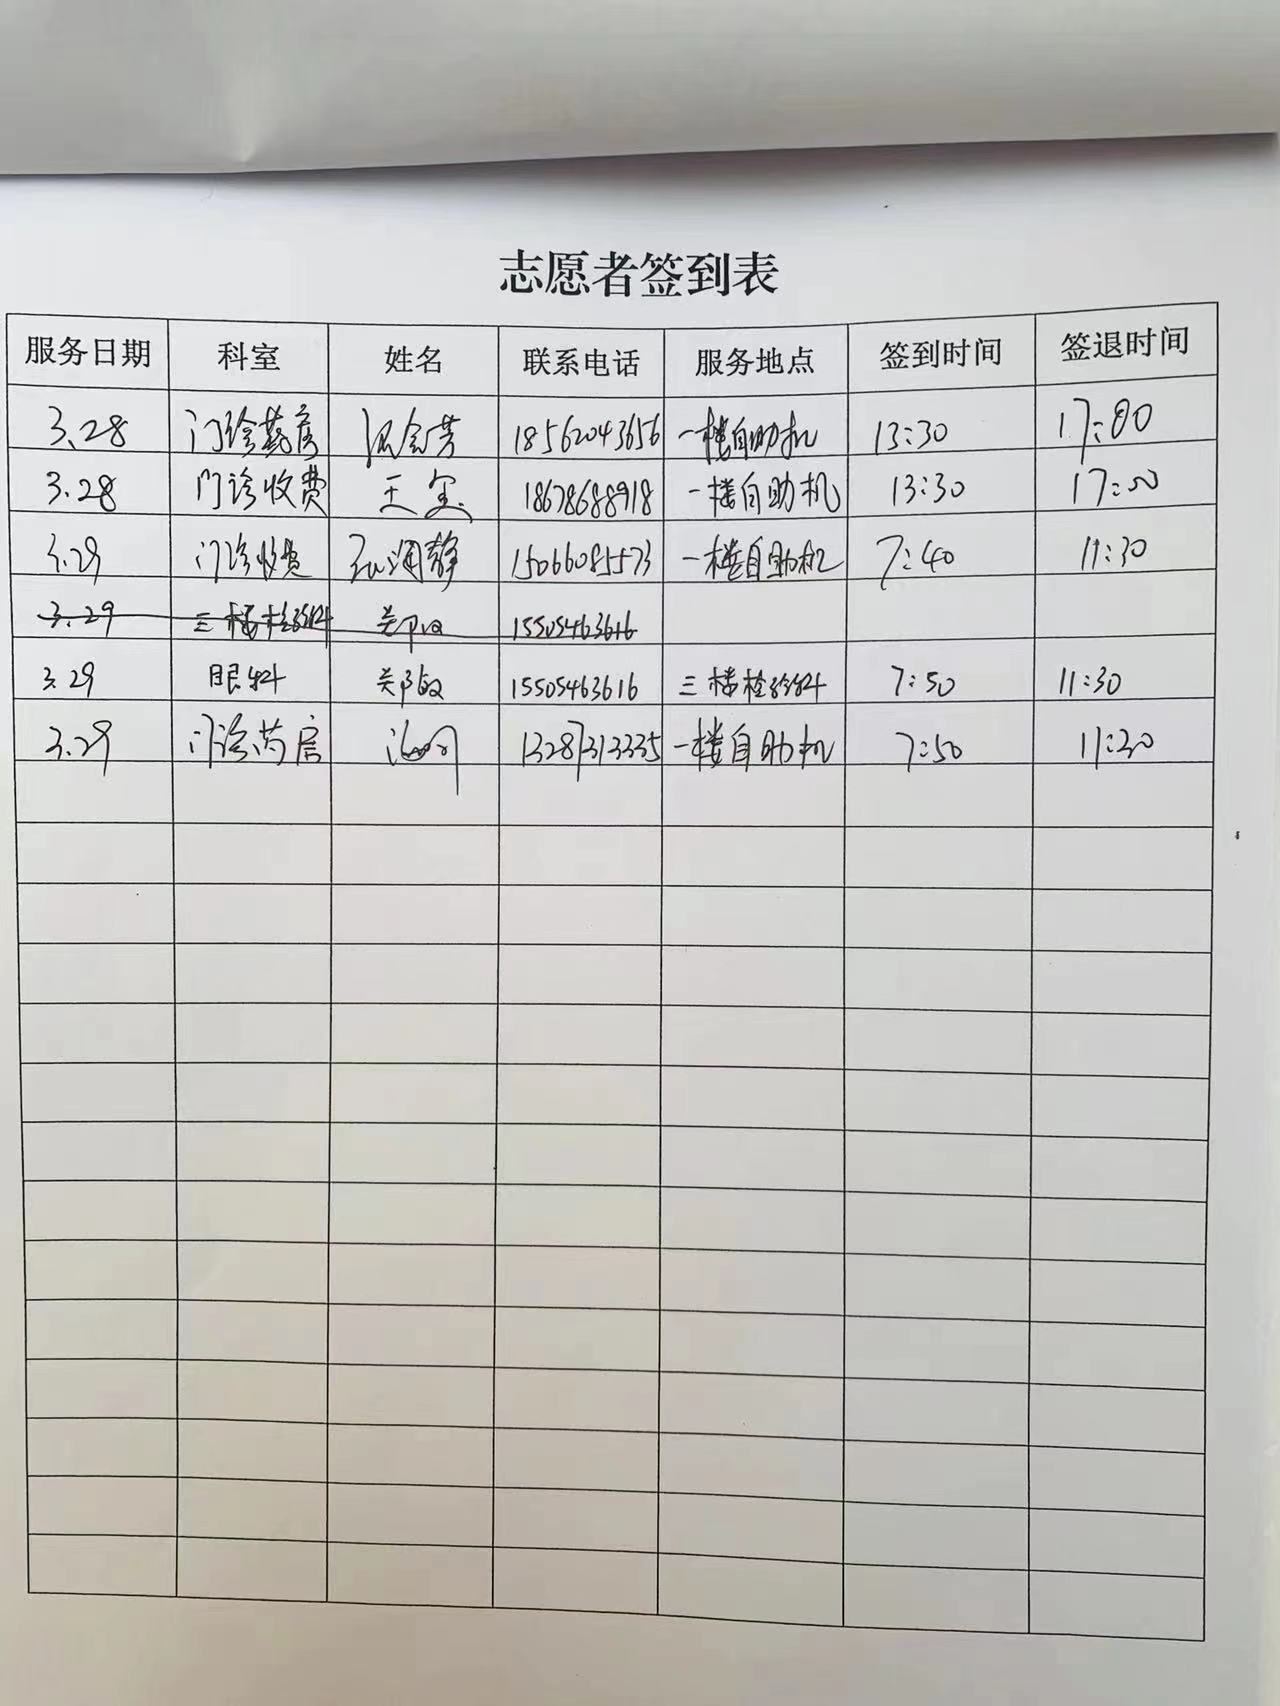 志愿者签到表
服务日期 科室 姓名 联系电话 服务地点 签到时间 签退时间
3.28 门诊药房 18562043656 一楼自助机 13:30 17:00
3.28 门诊收费 王宝 18678688918 一楼自助机 13:30 17:00
3.29 门诊收费 15066085573 一楼自助机 7:40 11:30
3.29 三楼检验科 郑敏 15505463616
3.29 眼科 郑敏 15505463616 三楼检验科 7:50 11:30
3.29 门诊药房 13287313335 一楼自助机 7:50 11:30